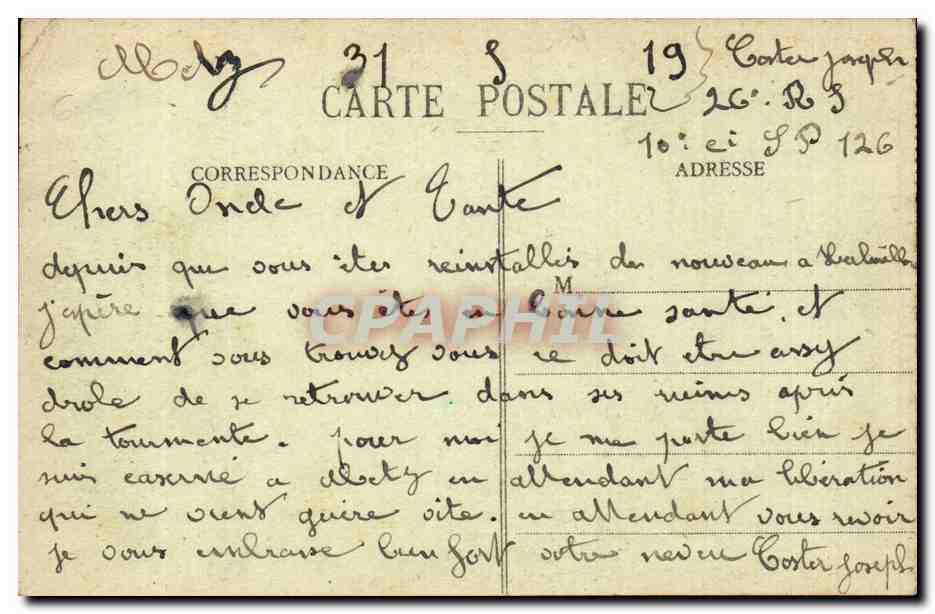 Metz 31 5 19 Toster Joseph
CARTE POSTALE 26e R I
10e Cie S P 126
CORRESPONDANCE ADRESSE
Chers Oncle et Tante
depuis que vous êtes reinstallés de nouveau a
M
j'espère que vous êtes en bonne santé, et
CPAPHIL
comment vous trouvez vous ce doit etre assy
drole de se retrouver dans ses ruines après
la tourmente. pour moi je me porte bien je
suis caserné a Metz en attendant ma libération
qui ne vient guère vite. en attendant vous revoir
je vous embrasse bien fort votre neveu Toster Joseph